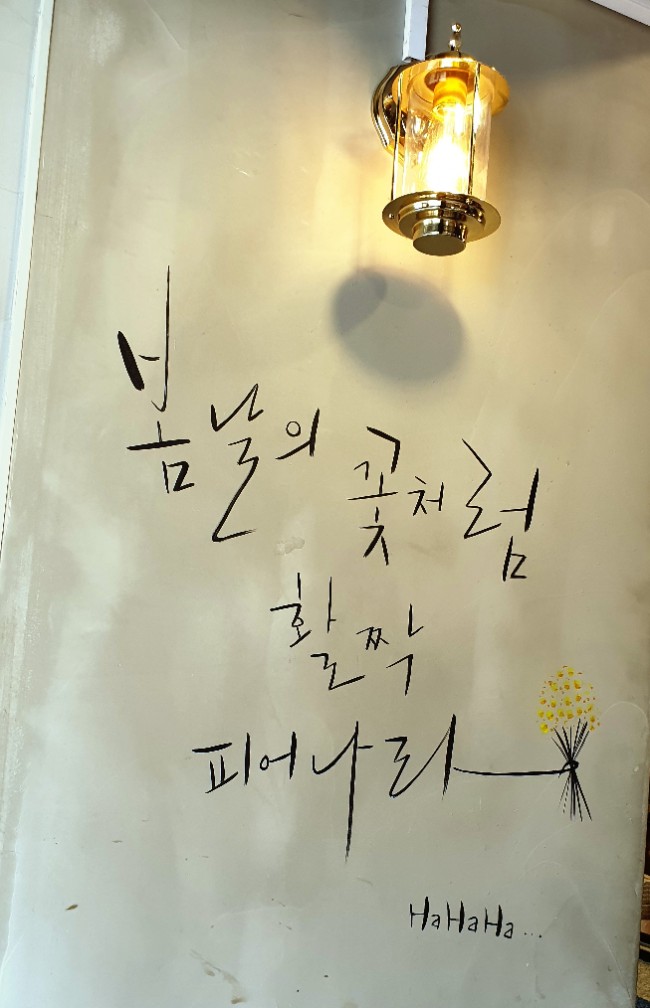 봄날의 꽃처럼
활짝
피어나라
HaHaHa...